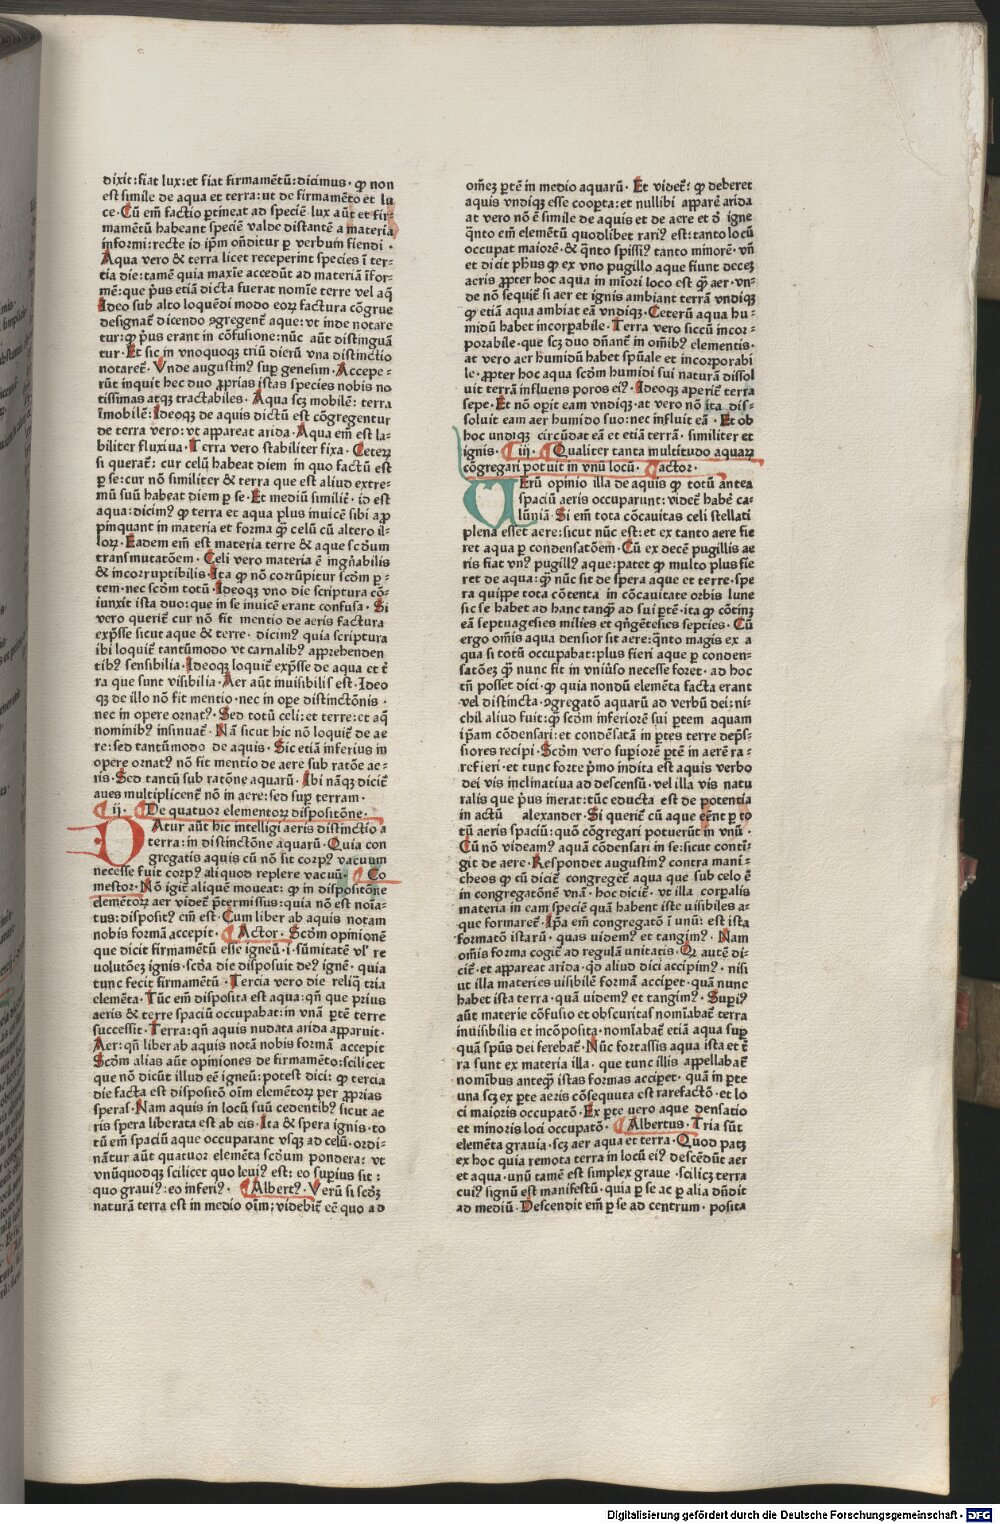 dixit:fiat lux:et fiat firmamētū:dicimus· ꝙ non
est simile de aqua et terra:ut de firmamēto et lu
ce·Cū em̄ factio ꝑtineat ad speciē lux aūt et fir-
mamētū habeant speciē valde distantē a materia
informi:recte id ip̄m on̄ditur ꝑ verbum fiendi ·
Aqua vero & terra licet receperint species ī ter-
tia die:tamē quia maxīe accedūt ad materiā īfor-
mē:que pꝰus etiā dicta fuerat nomīe terre vel aq̄
Ideo sub alto loquēdi modo eoꝝ factura cōgrue
designat᷑ dicendo ꝯgregent᷑ aque:vt inde notare
tur:ꝙ pꝰus erant in cōfusione:nūc aūt distinguā
tur·Et sic in vnoquoqꝫ triū dierū vna distinctio
notaret᷑·Vnde augustinꝰ suꝑ genesim·Accepe-
rūt inquit hec duo ꝓprias istas species nobis no
tissimas atqꝫ tractabiles·Aqua scꝫ mobilē: terra
īmobilē:Ideoqꝫ de aquis dictū est cōgregentur
de terra vero:vt appareat arida·Aqua em̄ est la-
biliter fluxiua·Terra vero stabiliter fixa·Ceteꝝ
si querat᷑: cur celū habeat diem in quo factū est
ꝑ se:cur nō similiter & terra que est aliud extre-
mū suū habeat diem ꝑ se·Et mediū similit᷑· id est
aqua:dicimꝰ ꝙ terra et aqua plus inuicē sibi aꝓ
pinquant in materia et forma ꝙ̄ celū cū altero il-
loꝝ·Eadem em̄ est materia terre & aque scd̄um
transmutatōem· Celi vero materia ē ingn̄abilis
& incorruptibilis·Ita ꝙ nō corrūpitur scd̄m ꝑ-
tem·nec scd̄m totū·Ideoqꝫ vno die scriptura cō-
iunxit ista duo:que in se inuicē erant confusa· Si
vero querit᷑ cur nō fit mentio de aeris factura
exp̄sse sicut aque & terre· dicimꝰ quia scriptura
ibi loquit᷑ tantūmodo vt carnalibꝰ apprehenden
tibꝰ sensibilia·Ideoqꝫ loquit᷑ exp̄sse de aqua et t᷑
ra que sunt visibilia·Aer aūt inuisibilis est·Ideo
qꝫ de illo nō fit mentio·nec in ope distinctōnis·
nec in opere ornatꝰ·Sed totū celi:et terre:et aq̄
nominibꝰ insinuat᷑· Nā sicut hic nō loquit᷑ de ae
re:sed tantūmodo de aquis·Sic etiā inferius in
opere ornatꝰ nō fit mentio de aere sub ratōe ae-
ris·Sed tantū sub ratōne aquarū· Ibi nāqꝫ dicit᷑
aues multiplicent᷑ nō in aere:sed suꝑ terram·
ij· De quatuor elementoꝝ dispositōne·
Datur aūt hic intelligi aeris distinctio a
terra:in distinctōne aquarū·Quia con
gregatis aquis cū nō sit corpꝰ vacuum
necesse fuit corpꝰ aliquod replere vacuū· Co
mestor·Nō igit᷑ aliquē moueat: ꝙ in dispositōne
elemētoꝝ aer videt᷑ p̄termissus:quia nō est noīa-
tus:dispositꝰ em̄ est·Cum liber ab aquis notam
nobis formā accepit· Actor· Scd̄m opinionē
que dicit firmamētū esse igneū·i·sūmitatē vl᷑ re
volutōeꝫ ignis·scd̄a die disposuit deꝰ ignē· quia
tunc fecit firmamētū·Tercia vero die reliq̄ tria
elemēta·Tūc em̄ disposita est aqua:qn̄ que prius
aeris & terre spaciū occupabat:in vnā ꝑtē terre
successit·Terra:qn̄ aquis nudata arida apparuit·
Aer:qn̄ liber ab aquis notā nobis formā accepit
Scd̄m alias aūt opiniones de firmamēto:scilicet
que nō dicūt illud eē igneū:potest dici: ꝙ tercia
die facta est dispositō oīm elemētoꝝ per ꝓprias
speras·Nam aquis in locū suū cedentibꝰ sicut ae
ris spera liberata est ab eis·Ita & spera ignis·to
tū em̄ spaciū aque occupārant vsqꝫ ad celū·ordi-
nātur aūt quatuor elemēta scd̄um pondera: vt
vnūquodqꝫ scilicet quo leuiꝰ est: eo suꝑius sit:
quo grauiꝰ:eo inferiꝰ· Albertꝰ· Verū si scd̄ꝫ
naturā terra est in medio oīm:videbit᷑ eē quo ad
om̄eꝫ ꝑtē in medio aquarū· Et videt᷑: ꝙ deberet
aquis vndiqꝫ esse cooꝑta:et nullibi apparē arida
at vero nō ē simile de aquis et de aere et ď igne
q̄nto em̄ elemētū quodlibet rariꝰ est:tanto locū
occupat maiorē·& q̄nto spissiꝰ tanto minorē· vn̄
et dicit ph̄us ꝙ ex vno pugillo aque fiunt deceꝫ
aeris ꝓpter hoc aqua in mīori loco est ꝙ̄ aer·vn-
de nō sequit᷑ si aer et ignis ambiant terrā vndiqꝫ
ꝙ etiā aqua ambiat eā vndiqꝫ·Ceterū aqua hu-
midū habet incorꝑabile·Terra vero siccū incor-
porabile·que scꝫ duo dn̄ant᷑ in om̄ibꝰ elementis·
at vero aer humidū habet spūale et incorporabi
le·ꝓpter hoc aqua scd̄m humidi sui naturā dissol
uit terrā influens poros eiꝰ·Ideoqꝫ aperit᷑ terra
sepe·Et nō opit eam vndiqꝫ·at vero nō ita dis-
soluit eam aer humido suo:nec influit eā ·Et ob
hoc undiqꝫ circūdat eā et etiā terrā· similiter et
ignis· iij· Qualiter tanta multitudo aquaꝝ
cōgregari potuit in vnū locū· actor·
VErū opinio illa de aquis ꝙ totū antea
spaciū aeris occuparunt: videt᷑ habē ca-
lūniā·Si em̄ tota cōcauitas celi stellati
plena esset aere:sicut nūc est:et ex tanto aere fie
ret aqua ꝑ condensatōem·Cū ex decē pugillis ae
ris fiat vnꝰ pugillꝰ aque:patet ꝙ multo plus fie
ret de aqua:ꝙ̄ nūc sit de spera aque et terre·spe
ra quippe tota cōtenta in cōcauitate orbis lune
sic se habet ad hanc tanqꝫ ad sui ꝑtē·ita ꝙ cōtinꝫ
eā septuagesies milies et qn̄gētesies septies· Cū
ergo om̄is aqua densior sit aere:q̄nto magis ex a
qua si totū occupabat:plus fieri aque ꝑ conden-
satōeꝫ ꝙ̄ nunc fit in vniuso necesse foret· ad hoc
tn̄ posset dici·ꝙ quia nondū elemēta facta erant
vel distincta·ꝯgregatō aquarū ad verbū dei:ni-
chil aliud fuit:ꝙ̄ scd̄m inferiorē sui ꝑtem aquam
ip̄am cōdensari:et condēsatā in ꝑtes terre dep̄s-
siores recipi·Scd̄m vero suꝑiorē ꝑtē in aerē ra-
refieri·et tunc forte pꝰmo indita est aquis verbo
dei vis inclinatiua ad descensū·vel illa vis natu
ralis que pꝰus inerat:tūc educta est de potentia
in actū alexander·Si querit᷑ cū aque eēnt ꝑ to
tū aeris spaciū:quō cōgregari potuerūt in vnū·
Cū nō videamꝰ aquā cōdensari in se:sicut contī-
git de aere·Respondet augustinꝰ contra mani-
cheos ꝙ cū dicit᷑ congreget᷑ aqua que sub celo ē
in congregatōnē vnā·hoc dicit᷑·vt illa corꝑalis
materia in eam speciē quā habent iste visibiles a-
que formaret᷑·Ip̄a em̄ congregatō ī unū: est ista
formatō istarū· quas videmꝰ et tangimꝰ· Nam
om̄is forma cogit᷑ ad regulā unitatis·Qꝛ autē di-
cit᷑·et appareat arida·qd̄ aliud dici accipimꝰ· nisi
ut illa materies visibilē formā acciꝑet·quā nunc
habet ista terra·quā videmꝰ et tangimꝰ·Suꝑiꝰ
aūt materie cōfusio et obscuritas nomīabat᷑ terra
inuisibilis et incōposita·nomīabat᷑ etiā aqua suꝑ
quā spūs dei ferebat᷑·Nūc fortassis aqua ista et t᷑
ra sunt ex materia illa· que tunc illis appellabat᷑
nomībus anteqꝫ istas formas acciꝑet· quā in ꝑte
una scꝫ ex ꝑte aeris cōsequuta est rarefactō·et lo
ci maioris occupatō·Ex ꝑte vero aque densatio
et minoris loci occupatō· Albertus·Tria sūt
elemēta grauia·scꝫ aer aqua et terra·Quod patꝫ
ex hoc quia remota terra in locū eiꝰ descēdūt aer
et aqua·unū tamē est simplex graue·scilicꝫ terra
cuiꝰ signū est manifestū·quia ꝑ se ac ꝑ alia dn̄dit
ad mediū·Descendit em̄ ꝑ se ad centrum· posita
Digitalisierung gefördert durch die Deutsche Forschungsgemeinschaft - DFG